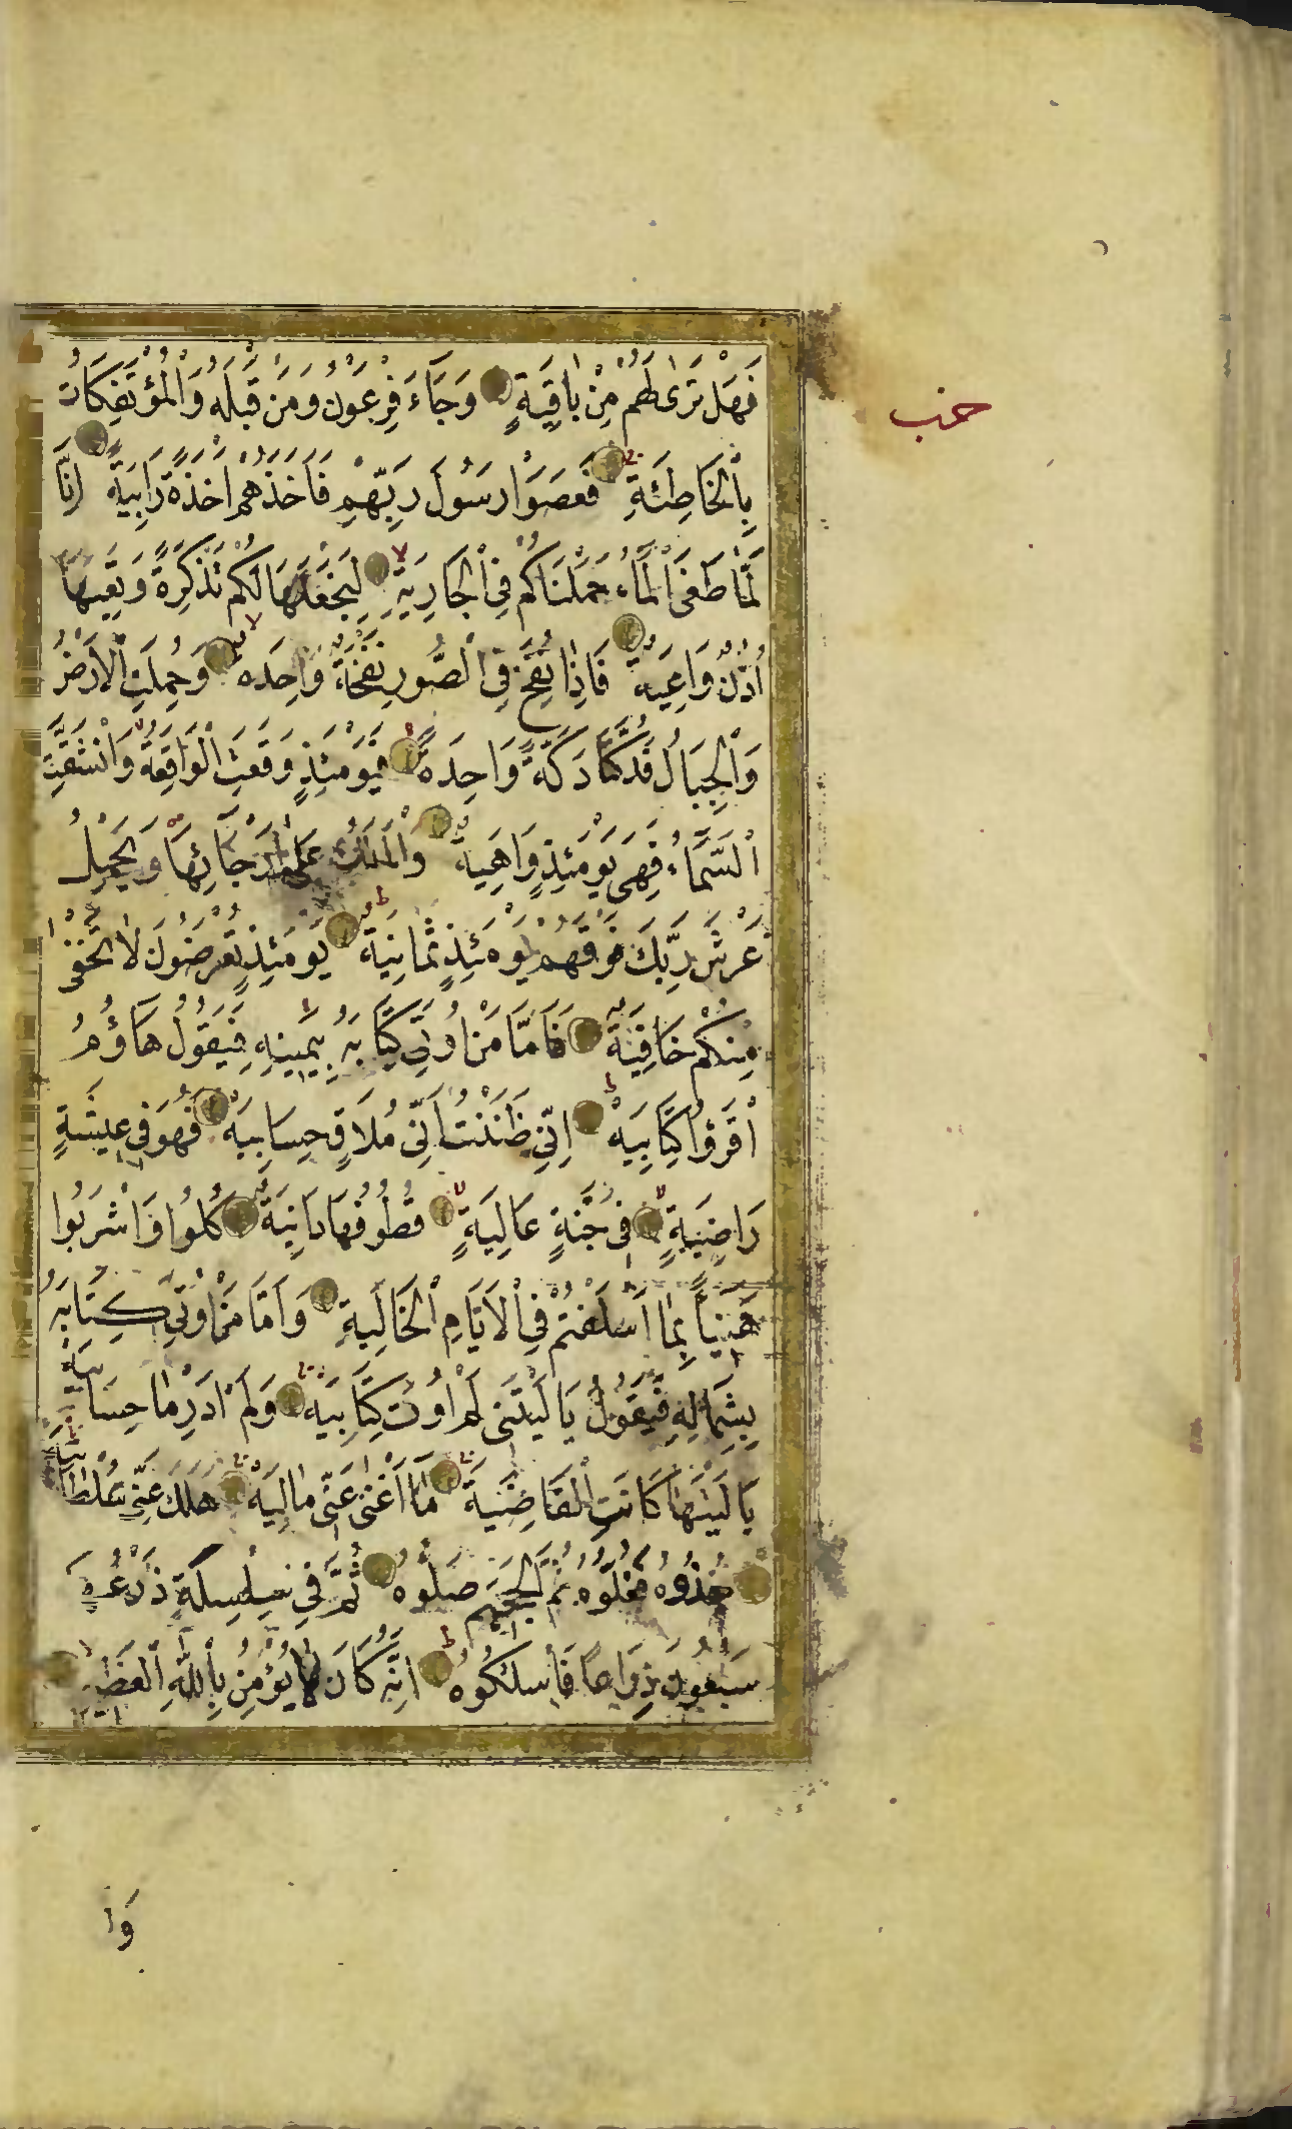 فَهَلْ تَرٰى لَهُمْ مِنْ بَاقِيَةٍ وَجَاءَ فِرْعَوْنُ وَمَنْ قَبْلَهُ وَالْمُؤْتَفِكَاتُ
بِالْخَاطِئَةِ فَعَصَوْا رَسُولَ رَبِّهِمْ فَاَخَذَهُمْ اَخْذَةً رَابِيَةً اِنَّا
لَمَّا طَغَى الْمَاءُ حَمَلْنَاكُمْ فِى الْجَارِيَةِ لِنَجْعَلَهَا لَكُمْ تَذْكِرَةً وَتَعِيَهَا
اُذُنٌ وَاعِيَةٌ فَاِذَا نُفِخَ فِى الصُّورِ نَفْخَةٌ وَاحِدَةٌ وَحُمِلَتِ الْاَرْضُ
وَالْجِبَالُ فَدُكَّتَا دَكَّةً وَاحِدَةً فَيَوْمَئِذٍ وَقَعَتِ الْوَاقِعَةُ وَانْشَقَّتِ
السَّمَاءُ فَهِىَ يَوْمَئِذٍ وَاهِيَةٌ وَالْمَلَكُ عَلٰى اَرْجَائِهَا وَيَحْمِلُ
عَرْشَ رَبِّكَ فَوْقَهُمْ يَوْمَئِذٍ ثَمَانِيَةٌ يَوْمَئِذٍ تُعْرَضُونَ لَا تَخْفٰى
مِنْكُمْ خَافِيَةٌ فَاَمَّا مَنْ اُوتِىَ كِتَابَهُ بِيَمِينِهِ فَيَقُولُ هَاؤُمُ
اقْرَؤُا كِتَابِيَهْ اِنِّى ظَنَنْتُ اَنِّى مُلَاقٍ حِسَابِيَهْ فَهُوَ فِى عِيشَةٍ
رَاضِيَةٍ فِى جَنَّةٍ عَالِيَةٍ قُطُوفُهَا دَانِيَةٌ كُلُوا وَاشْرَبُوا
هَنِيئًا بِمَا اَسْلَفْتُمْ فِى الْاَيَّامِ الْخَالِيَةِ وَاَمَّا مَنْ اُوتِىَ كِتَابَهُ
بِشِمَالِهِ فَيَقُولُ يَا لَيْتَنِى لَمْ اُوتَ كِتَابِيَهْ وَلَمْ اَدْرِ مَا حِسَابِيَهْ
يَا لَيْتَهَا كَانَتِ الْقَاضِيَةَ مَا اَغْنٰى عَنِّى مَالِيَهْ هَلَكَ عَنِّى سُلْطَانِيَهْ
خُذُوهُ فَغُلُّوهُ ثُمَّ الْجَحِيمَ صَلُّوهُ ثُمَّ فِى سِلْسِلَةٍ ذَرْعُهَا
سَبْعُونَ ذِرَاعًا فَاسْلُكُوهُ اِنَّهُ كَانَ لَا يُؤْمِنُ بِاللّٰهِ الْعَظِيمِ